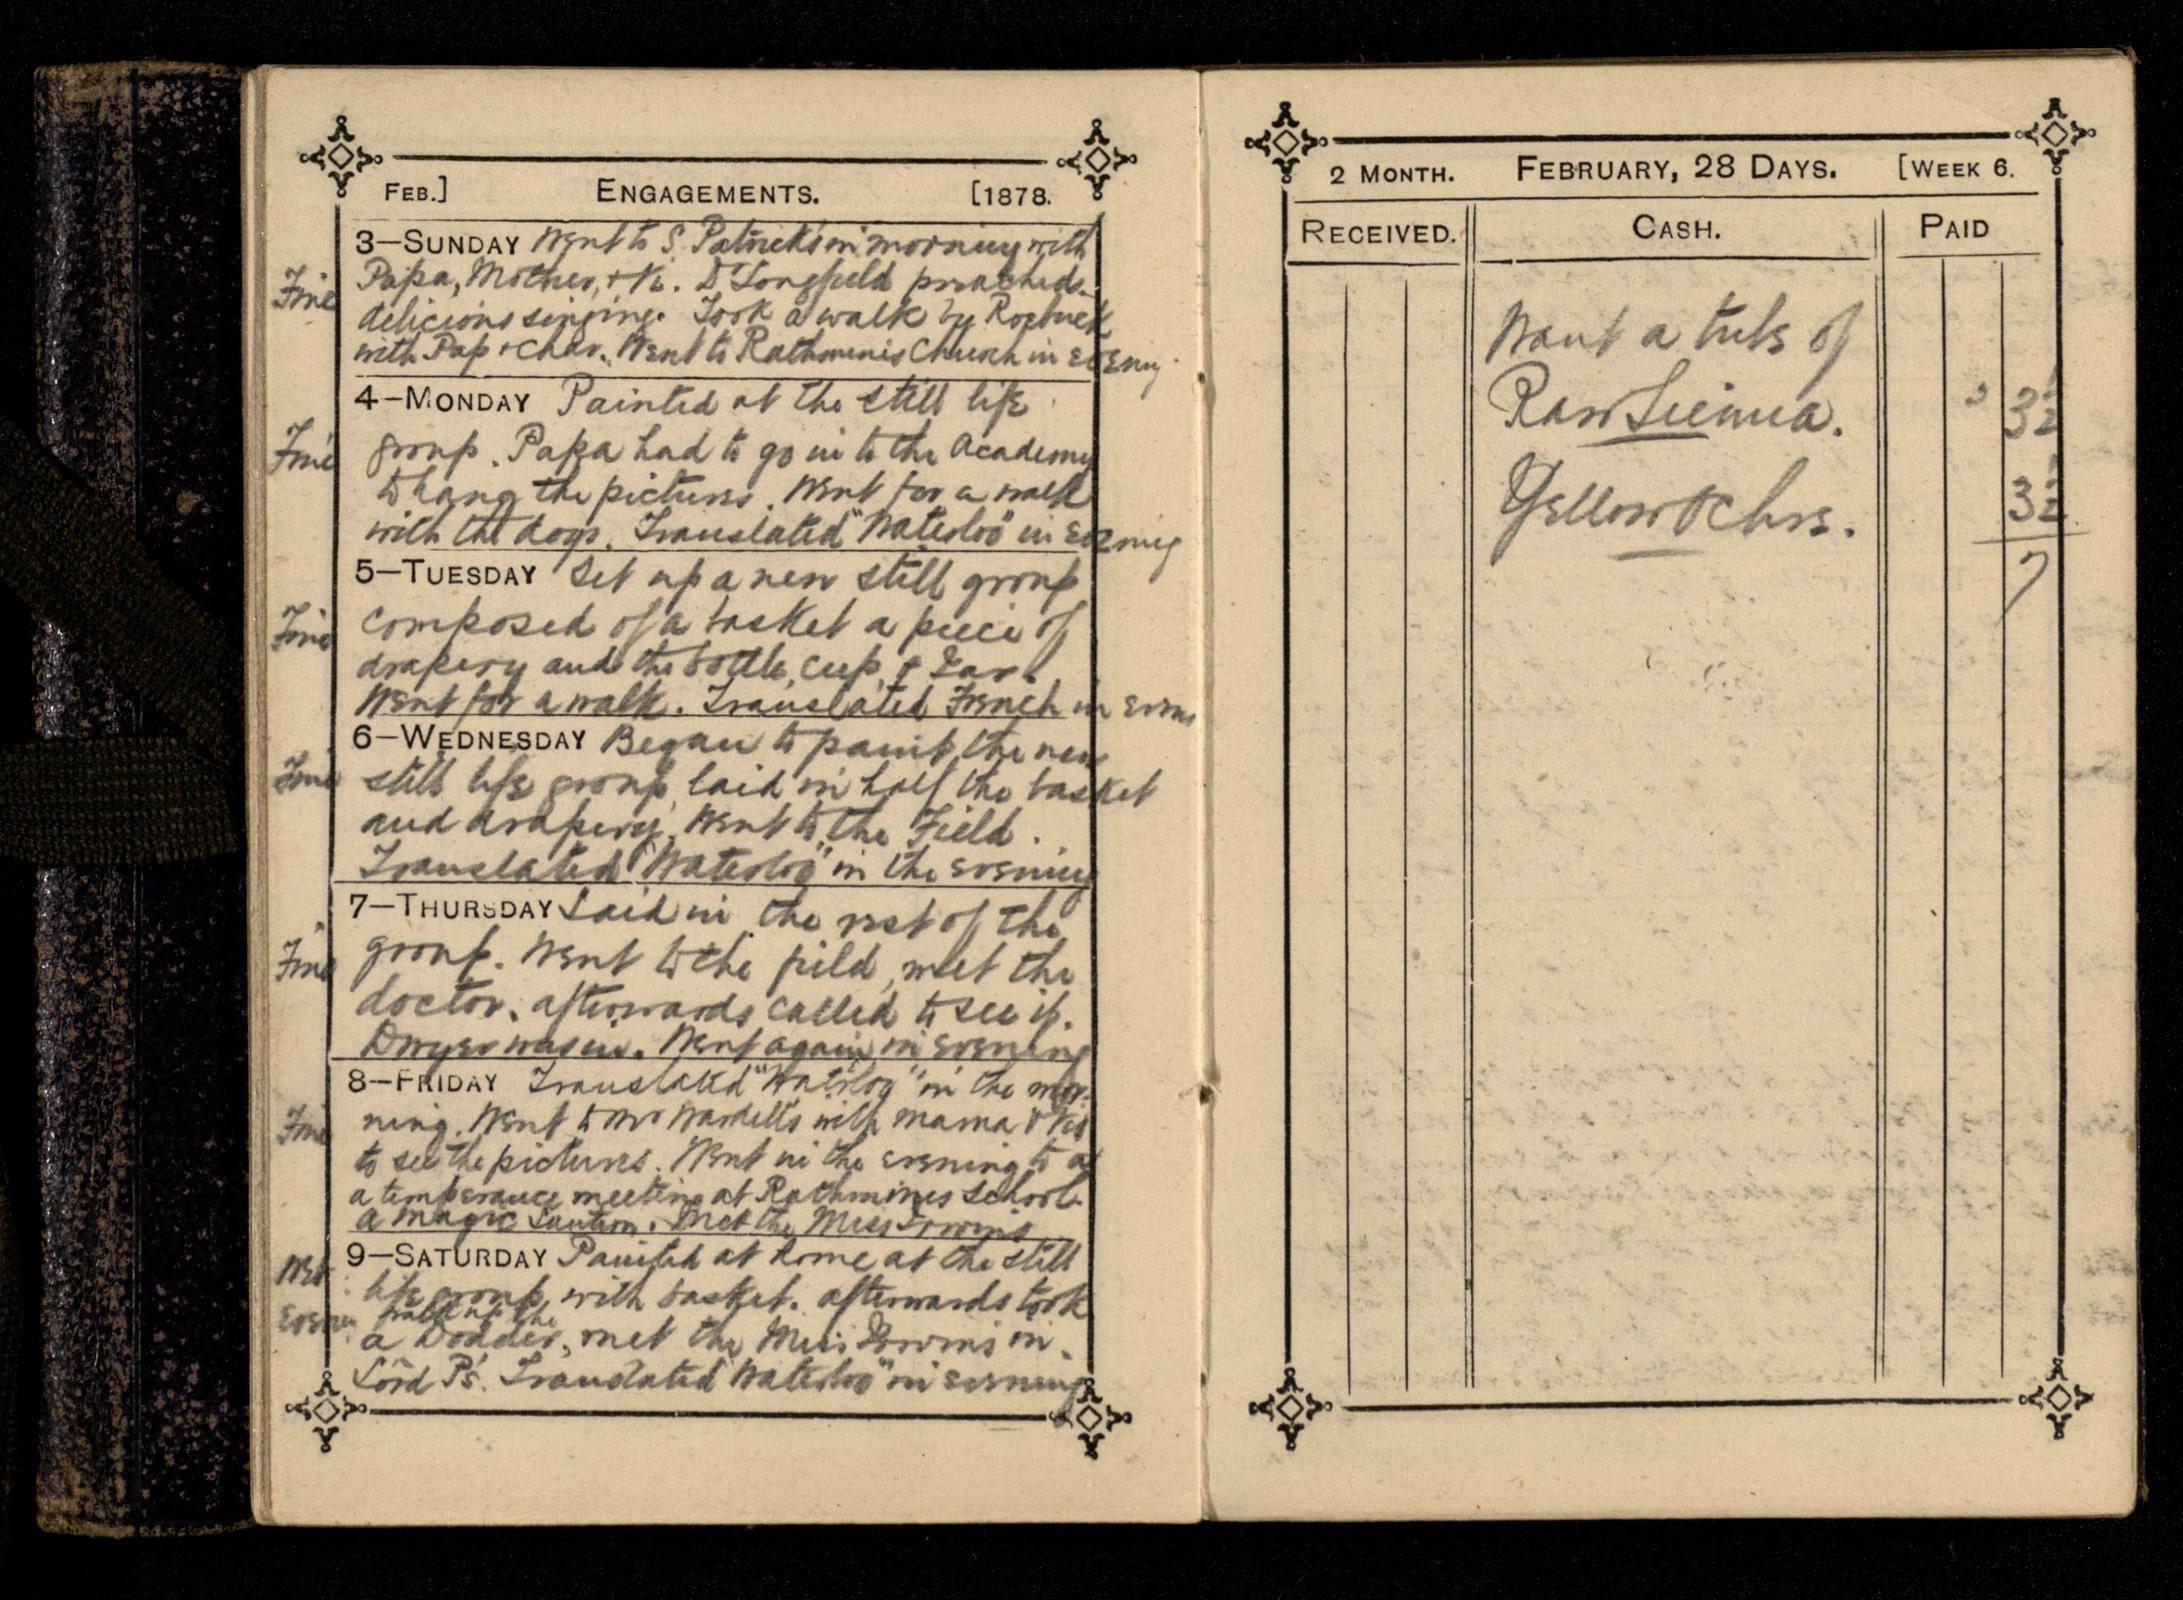 FEB.] ENGAGEMENTS. [1878.
3—SUNDAY Went to S. Patrick's in morning with
Papa, Mother, + Vi. Dr Longfield preached.
Fine
delicious singing. Took a walk by Roebuck
with Pap + Char. Went to Rathmines Church in evening
4—MONDAY Painted at the still life
Fine group. Papa had to go in to the Academy
to hang the pictures. Went for a walk
with the dogs. Translated "Waterloo" in evening
5—TUESDAY Set up a new still group
Fine composed of a basket a piece of
drapery and the bottle, cup, + Jar.
Went for a walk. Translated French in
6—WEDNESDAY Began to paint the new
Fine still life group, laid in half the basket
and drapery. Went to the Field.
Translated "Waterloo" in the evening
7—THURSDAY Laid in the rest of the
Fine group. Went to the field, met the
doctor. afterwards called to see if
Dwyer was in. Went again in evening
8—FRIDAY Translated "Waterloo" in the mor-
Fine ning. Went to Mr Wardell's with Mama +
to see the pictures. Went in the evening to a
a temperance meeting at Rathmines School
a magic lantern. Met the Miss
9—SATURDAY Painted at home at the still
Wet life group with basket. afterwards took
walk up the
a Dodder, met the Miss in
Lord P's. Translated "Waterloo" in evening
2 MONTH. FEBRUARY, 28 DAYS. [WEEK 6.
RECEIVED. CASH. PAID
Want a tube of
Raw Sienna. 3½
Yellow Ochre. 3½
7